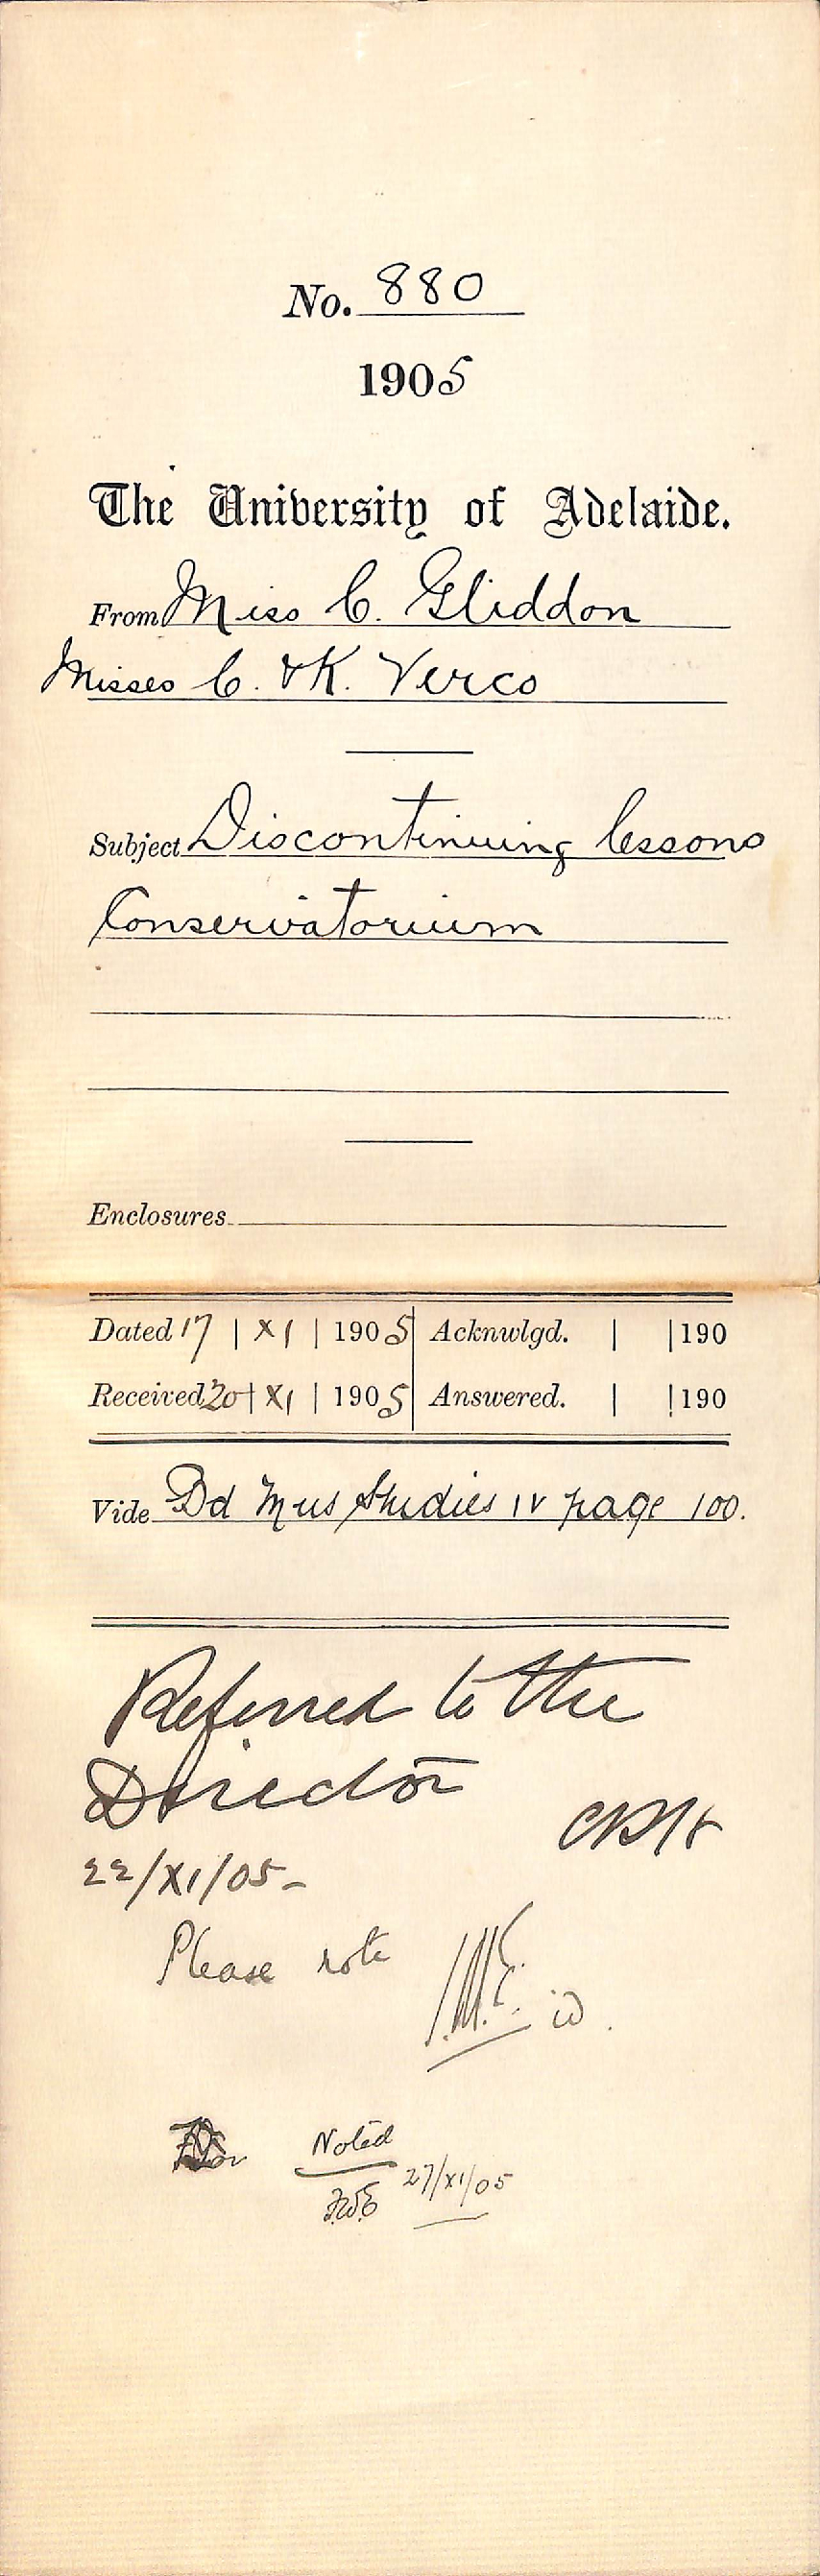 No. 880
1905
The University of Adelaide.
From Miss C. Gliddon
Misses C. & K. Verco
Subject Discontinuing lessons
Conservatorium
Enclosures
Dated 17 | XI | 1905 Acknwlgd. | | 190
Received 20 | XI | 1905 Answered. | | 190
Vide Bd Mus Studies IV page 100.
Referred to the
Director
22/XI/05
Please note
Noted
27/XI/05